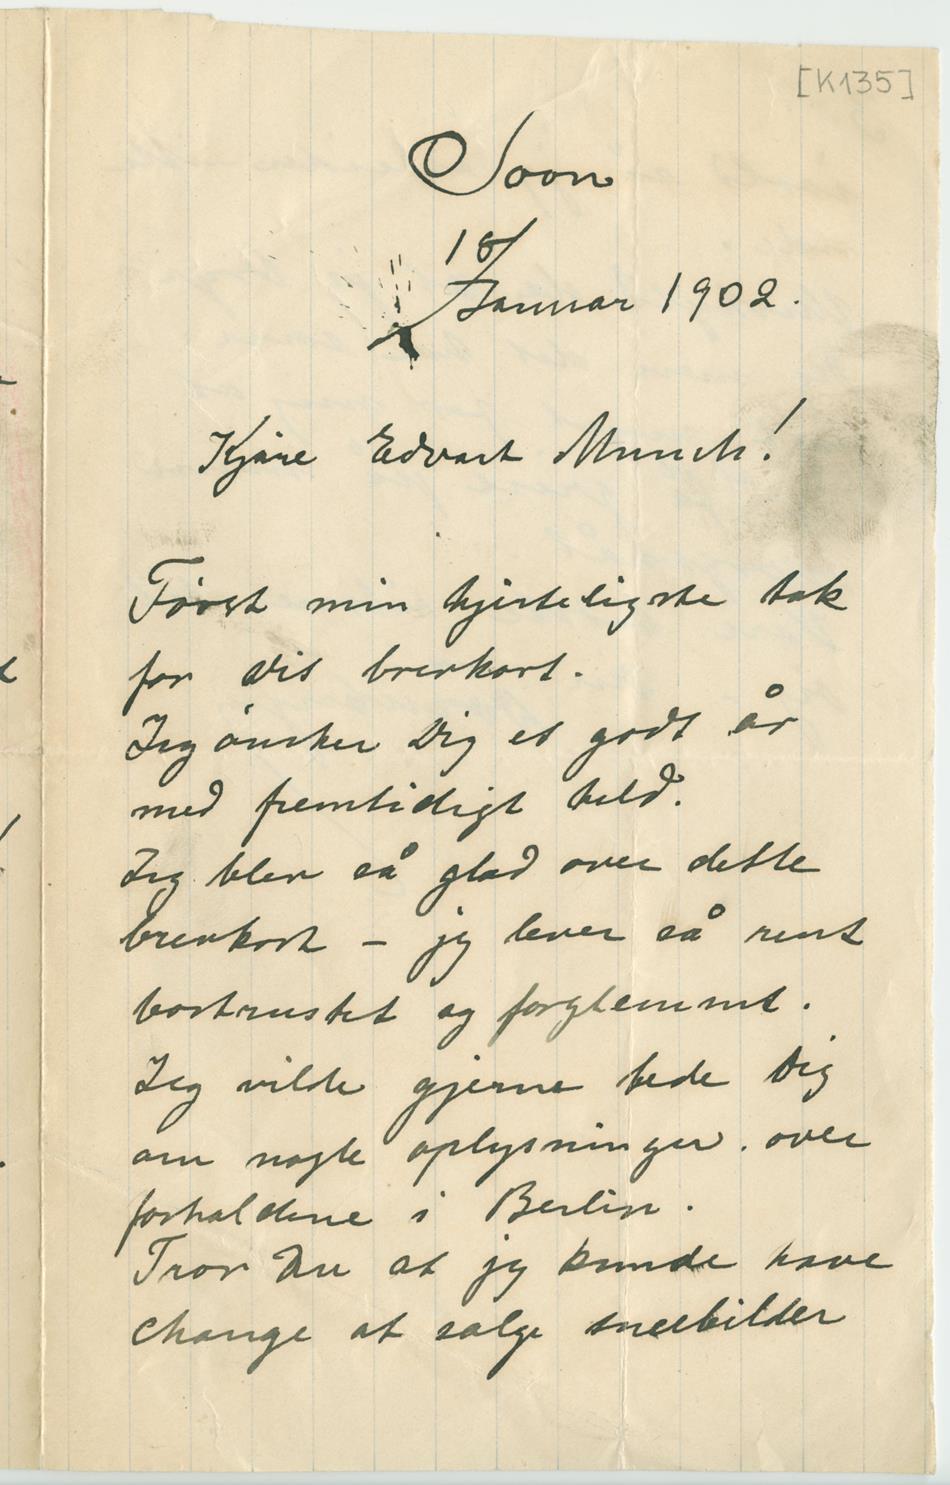 [K135]
Soon
18/
Januar 1902.
Kjære Edvart Munch!
Først min hjerteligste tak
for Dit brevkort.
Jeg ønsker Dig et godt år
med fremtidigt held.
Jeg blev så glad over dette
brevkort – jeg lever så rent
bortrustet og forglemmt.
Jeg vilde gjerne bede Dig
om nogle oplysninger over
forholdene i Berlin.
Tror Du at jeg kunde have
change at sælge sneebilder